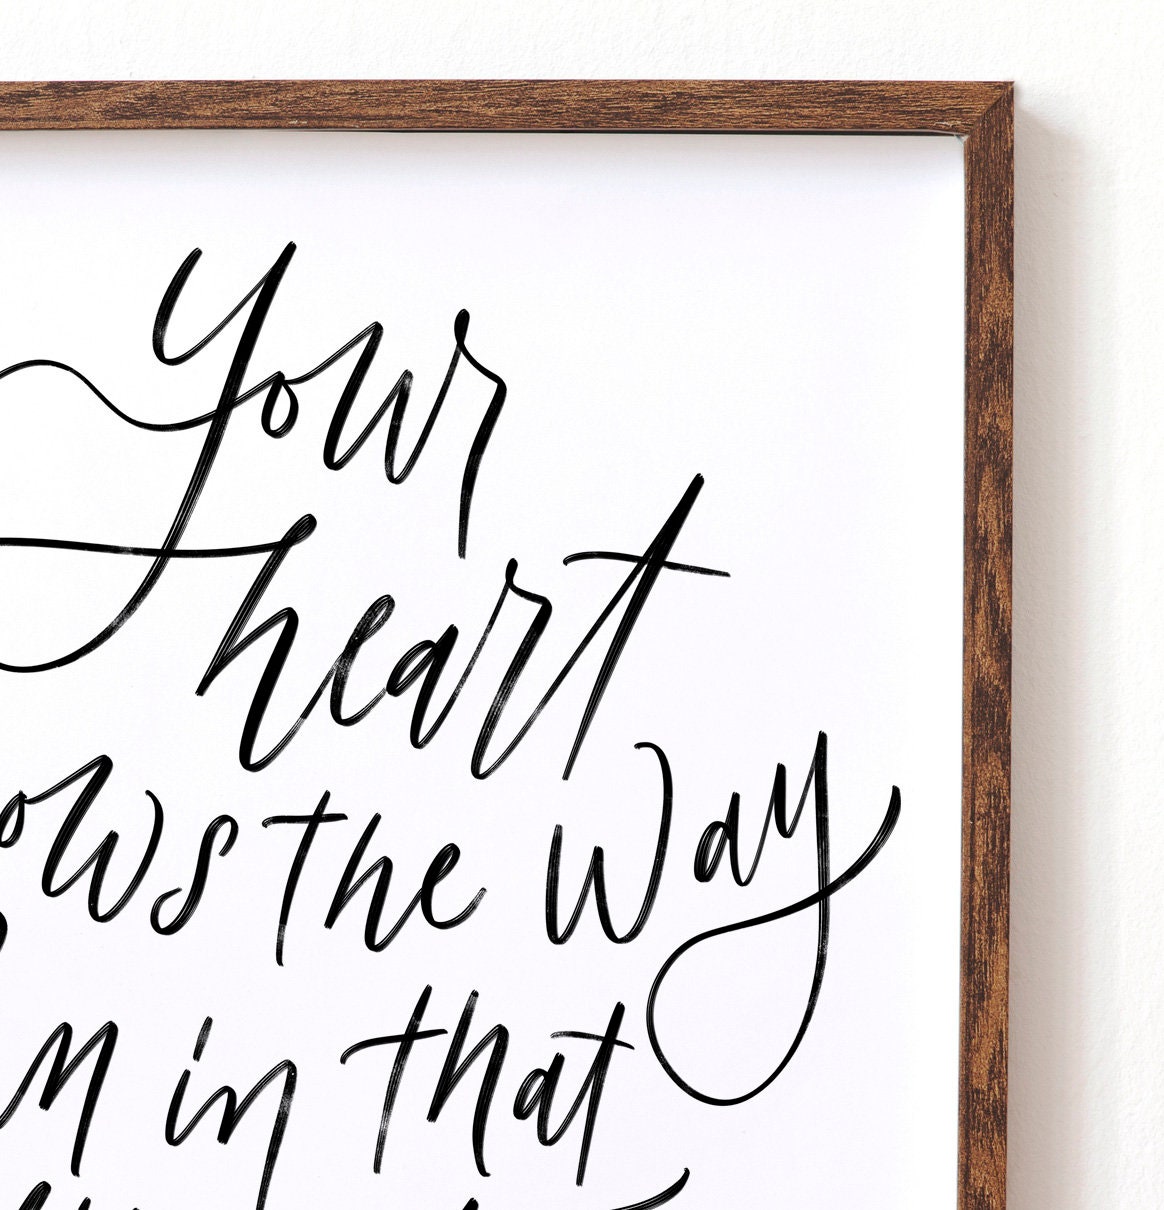 Your
heart
ows the way
in that